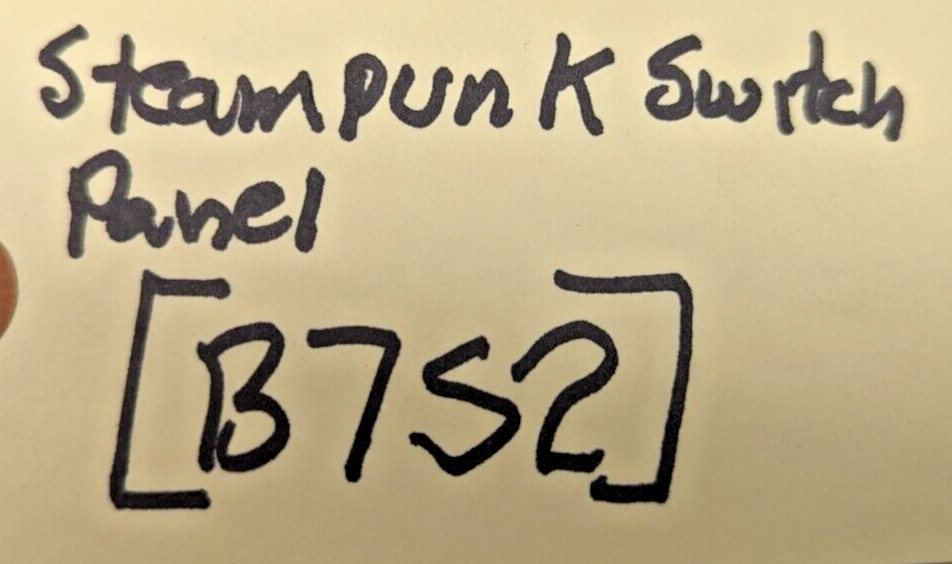 Steampunk Switch
Panel
[B7S2]